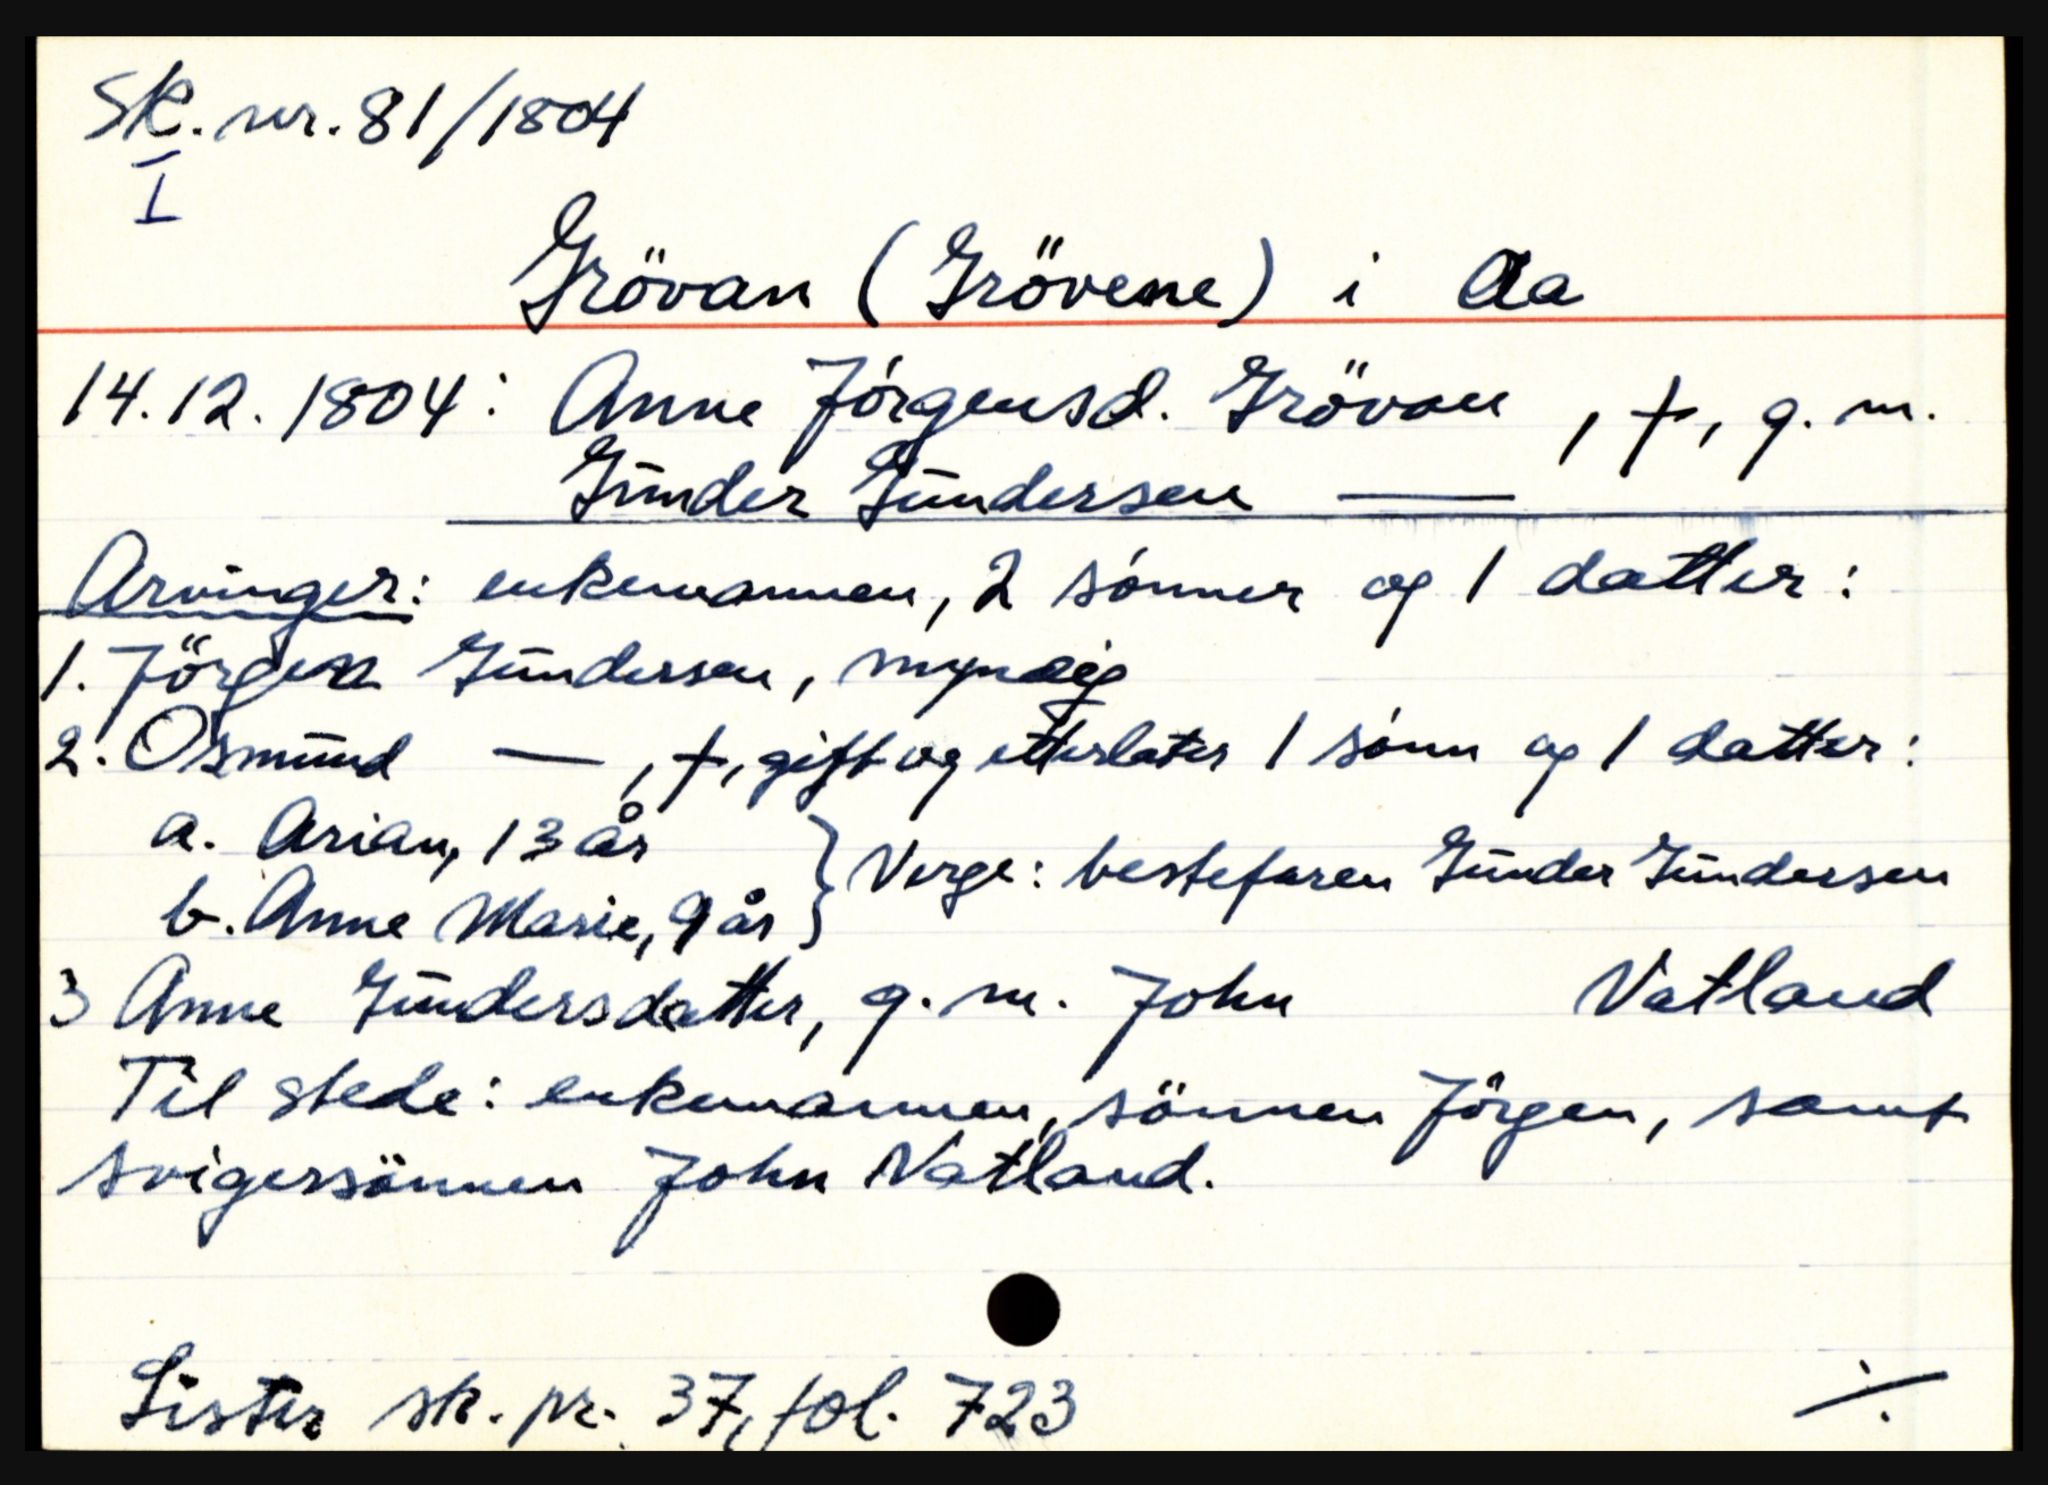 Sk. nr. 81/1804
I
Grövan (Grövene) i Aa
14.12.1804: Anne Jörgensd. Grövan, †, g. m.
Gunder Gundersen —
Arvinger: enkemannen, 2 sönner og 1 datter:
1. Jörgen Gundersen, myndig
2. Osmund —, †, gift og etterlater 1 sönn og 1 datter:
a. Arian, 13 år
b. Anne Marie, 9 år } Verge: bestefaren Gunder Gundersen
3 Anne Gundersdatter, g. m. John Vatland
Til stede: enkemannen, sönnen Jörgen, samt
svigersönnen John Vatland.
Lister sk. pr. 37, fol. 723 ⁒